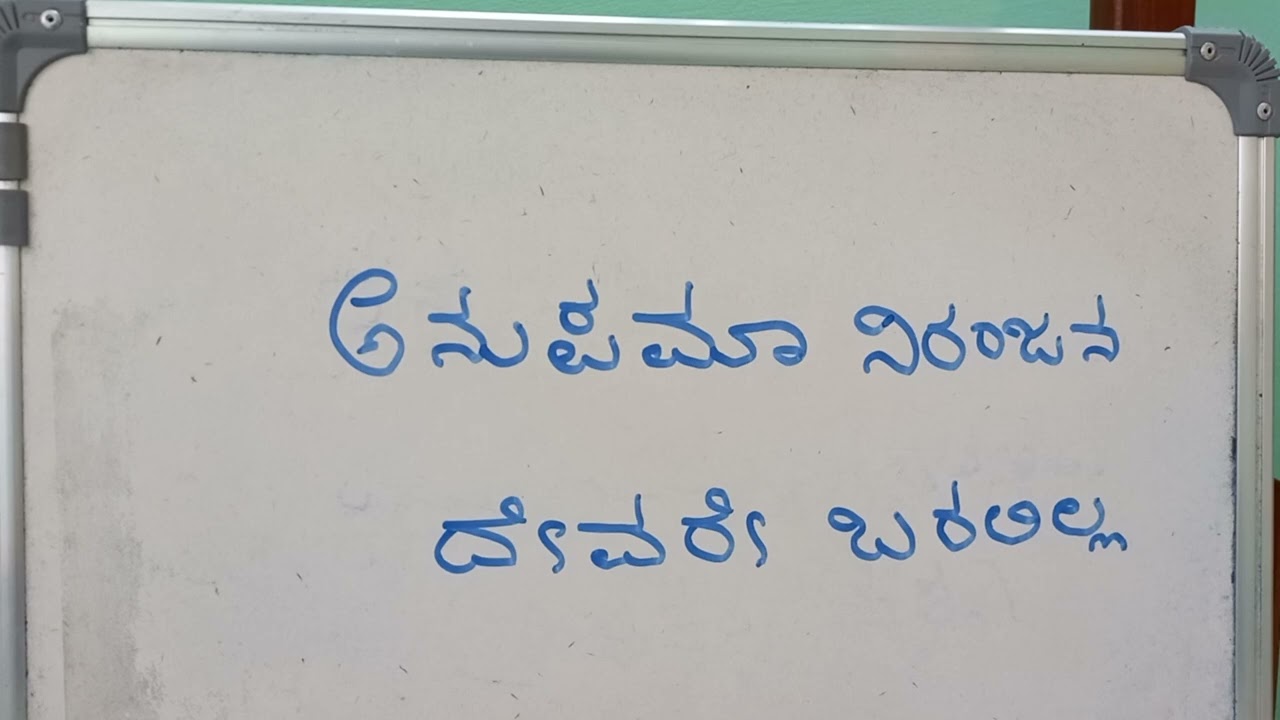 ಅನುಪಮಾ ನಿರಂಜನ
ದೇವರೇ ಬರಲಿಲ್ಲ